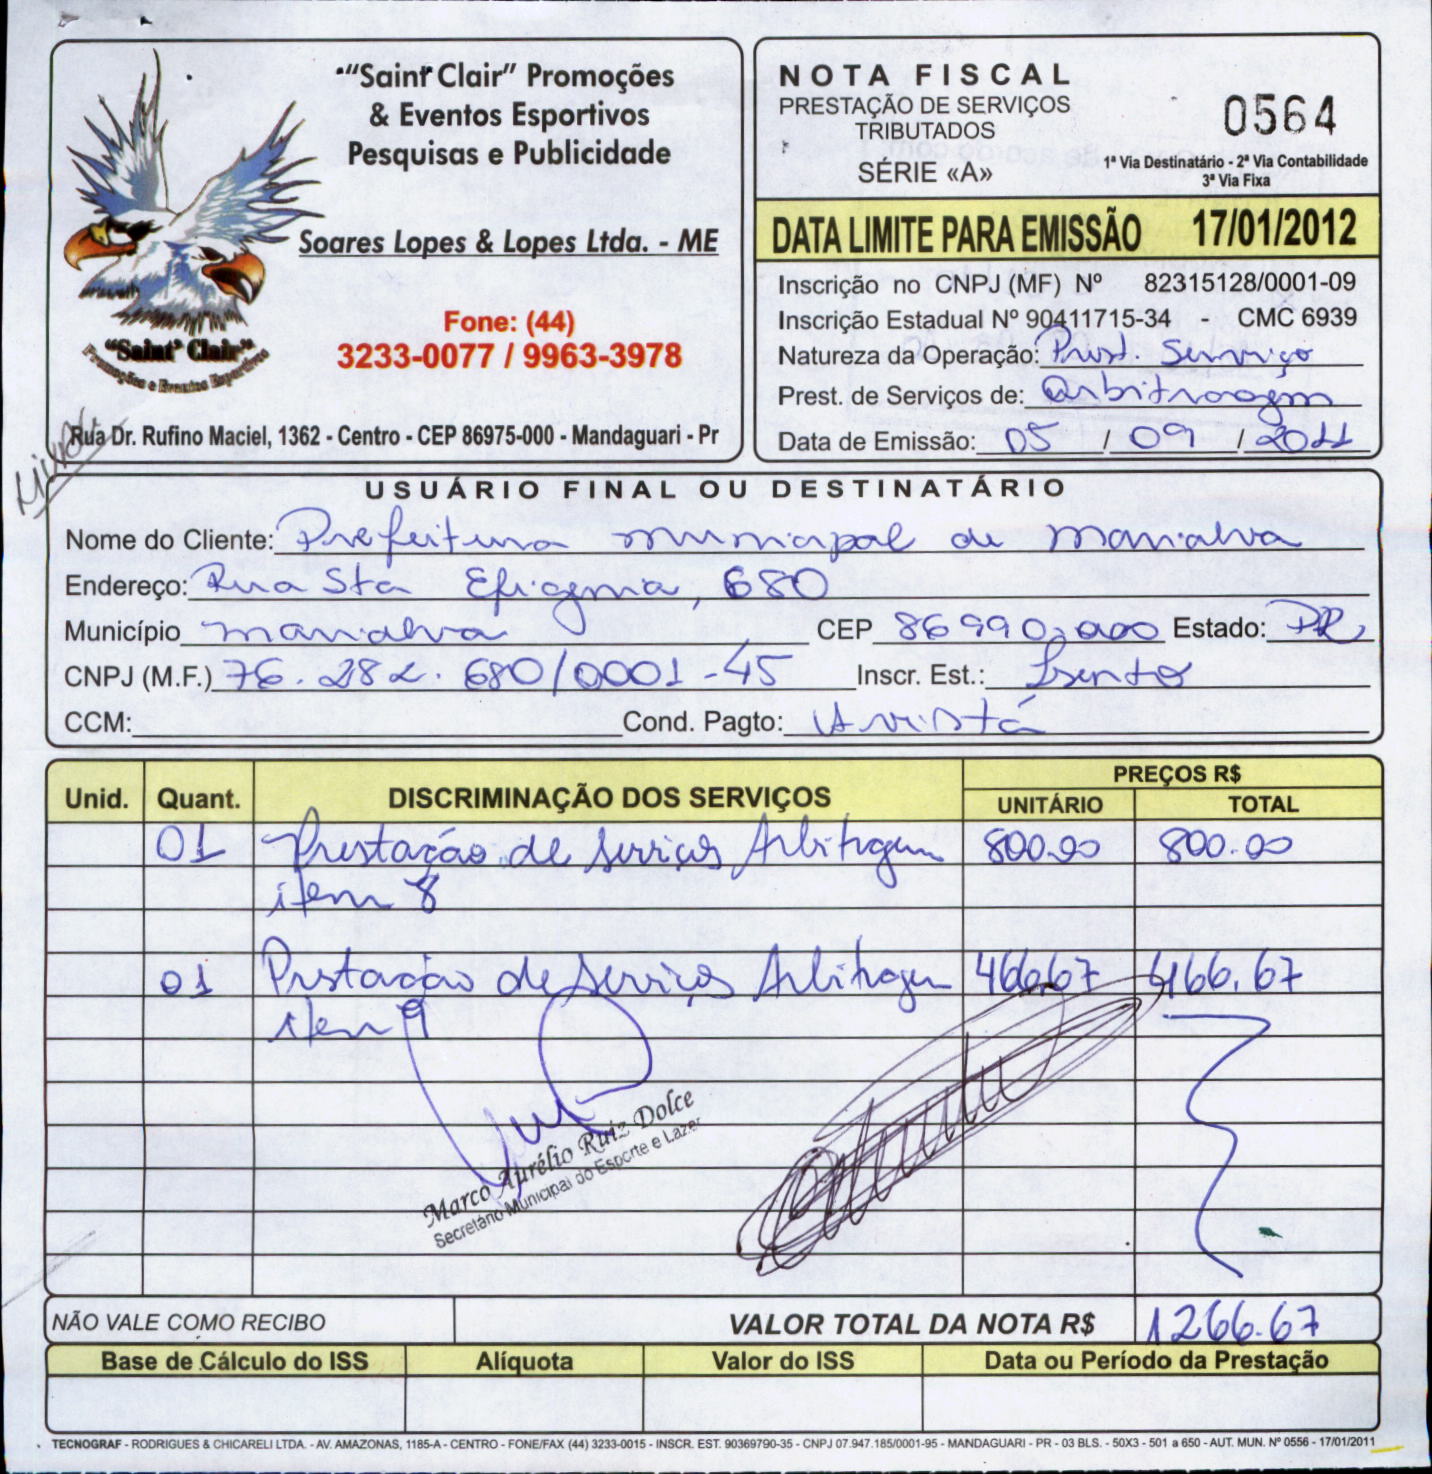 "Saint Clair" Promoções
& Eventos Esportivos
Pesquisas e Publicidade
Soares Lopes & Lopes Ltda. - ME
Fone: (44)
3233-0077 / 9963-3978
"Saint' Clair"
Promoções e Eventos Esportivos
Rua Dr. Rufino Maciel, 1362 - Centro - CEP 86975-000 - Mandaguari - Pr
NOTA FISCAL
PRESTAÇÃO DE SERVIÇOS
TRIBUTADOS
SÉRIE «A»
0564
1ª Via Destinatário - 2ª Via Contabilidade
3ª Via Fixa
DATA LIMITE PARA EMISSÃO 17/01/2012
Inscrição no CNPJ (MF) Nº 82315128/0001-09
Inscrição Estadual Nº 90411715-34 - CMC 6939
Natureza da Operação: Prest. Serviço
Prest. de Serviços de: Arbitragem
Data de Emissão: 05 / 09 / 2011
USUÁRIO FINAL OU DESTINATÁRIO
Nome do Cliente: Prefeitura municipal de marialva
Endereço: Rua Sta Efigenia, 680
Município marialva CEP 86990,000 Estado: PR
CNPJ (M.F.) 76.282.680/0001-45 Inscr. Est.: Isento
CCM: Cond. Pagto: Avista
Unid. Quant. DISCRIMINAÇÃO DOS SERVIÇOS PREÇOS R$
UNITÁRIO TOTAL
01 Prestação de serviços Arbitragem 800.00 800.00
item 8
01 Prestação de serviços Arbitragem 466.67 466.67
item 9
Marco Aurélio Ruiz Dolce
Secretário Municipal do Esporte e Lazer
NÃO VALE COMO RECIBO VALOR TOTAL DA NOTA R$ 1266.67
Base de Cálculo do ISS Alíquota Valor do ISS Data ou Período da Prestação
TECNOGRAF - RODRIGUES & CHICARELI LTDA. - AV. AMAZONAS, 1185-A - CENTRO - FONE/FAX (44) 3233-0015 - INSCR. EST. 90369790-35 - CNPJ 07.947.185/0001-95 - MANDAGUARI - PR - 03 BLS. - 50X3 - 501 a 650 - AUT. MUN. Nº 0556 - 17/01/2011